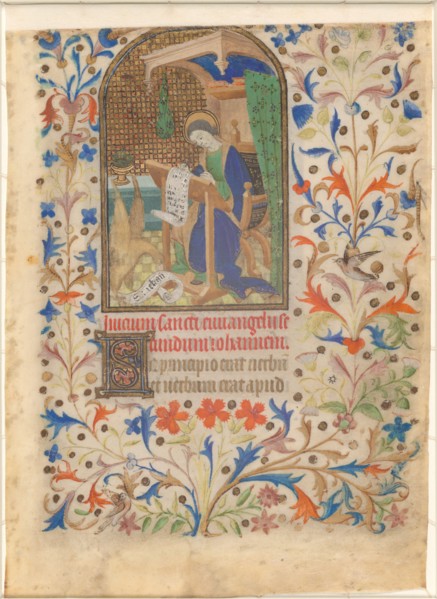 Inicium sancti euuangelij se
cundum iohannem.
In principio erat verbū
et verbum erat apud